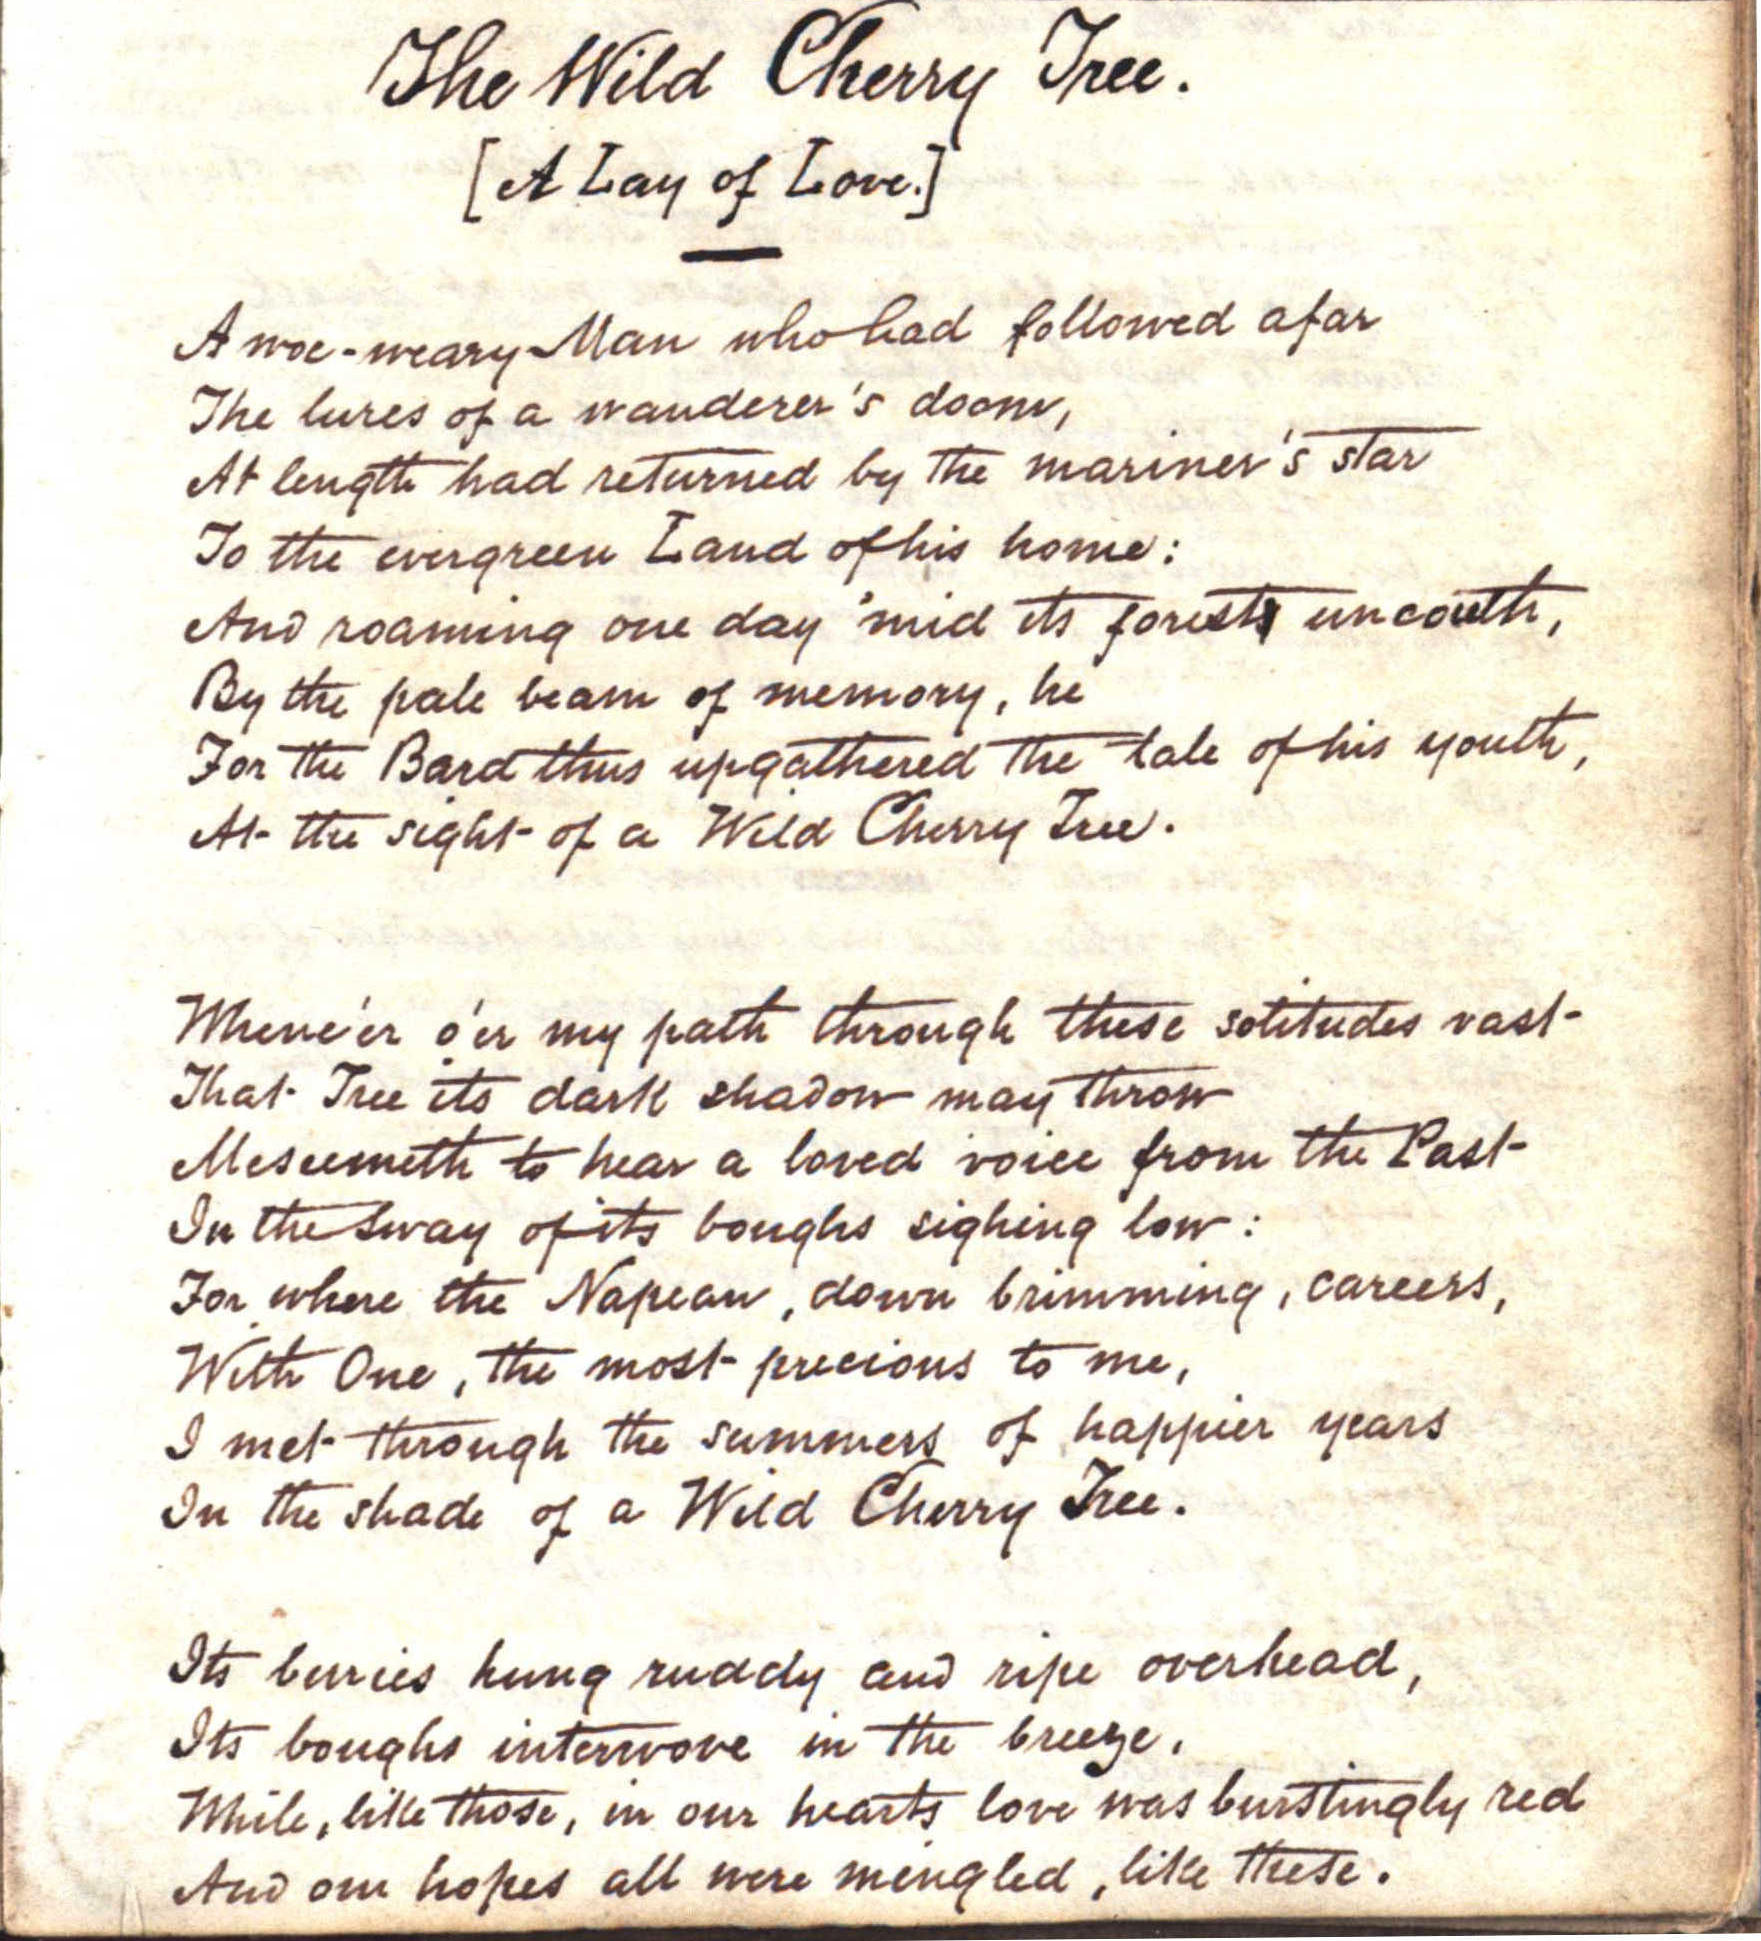 The Wild Cherry Tree.
[A Lay of Love.]
A woe-weary Man who had followed afar
The lures of a wanderer's doom,
At length had returned by the mariner's star
To the evergreen Land of his home:
And roaming one day 'mid its forests uncouth,
By the pale beam of memory, he
For the Bard thus upgathered the tale of his youth,
At the sight of a Wild Cherry Tree.
Whene'er o'er my path through these solitudes vast
That Tree its dark shadow may throw
Meseemeth to hear a loved voice from the Past
In the sway of its boughs sighing low:
For where the Napean, down brimming, careers,
With One, the most precious to me,
I met through the summers of happier years
In the shade of a Wild Cherry Tree.
Its berries hung ruddy and ripe overhead,
Its boughs interwove in the breeze,
While, like those, in our hearts love was burstingly red
And our hopes all were mingled, like these.